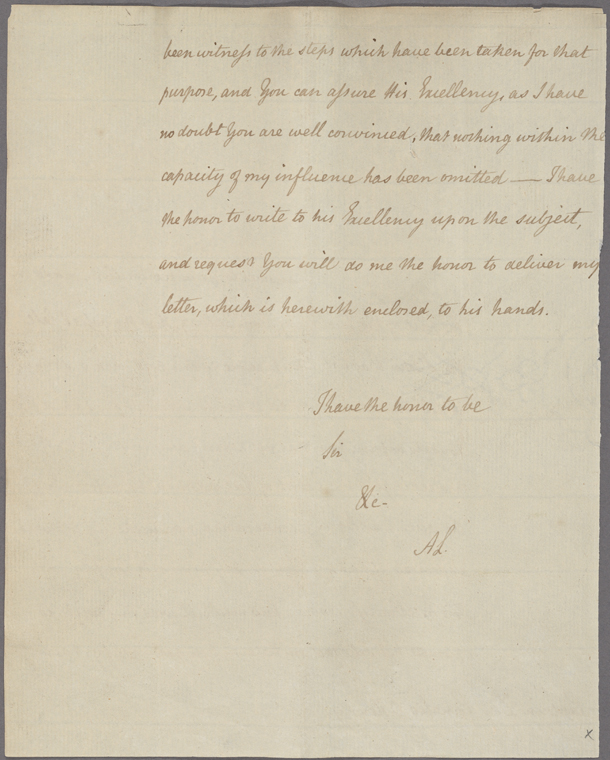 been witness to the steps which have been taken for that
purpose, and You can assure His Excellency, as I have
no doubt You are well convinced, that nothing within the
capacity of my influence has been omitted — I have
the honor to write to his Excellency upon the subject,
and request You will do me the honor to deliver my
letter, which is herewith enclosed, to his hands.
I have the honor to be
Sir
&c-
AL.
x